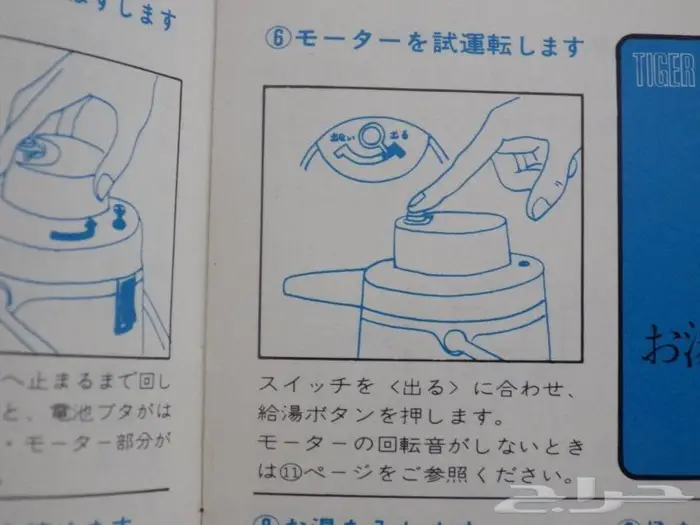 します
へ止まるまで回し
と、電池ブタがは
・モーター部分が
⑥モーターを試運転します
出ない 出る
スイッチを〈出る〉に合わせ、
給湯ボタンを押します。
モーターの回転音がしないとき
は⑪ページをご参照ください。
TIGER
お湯
حراج